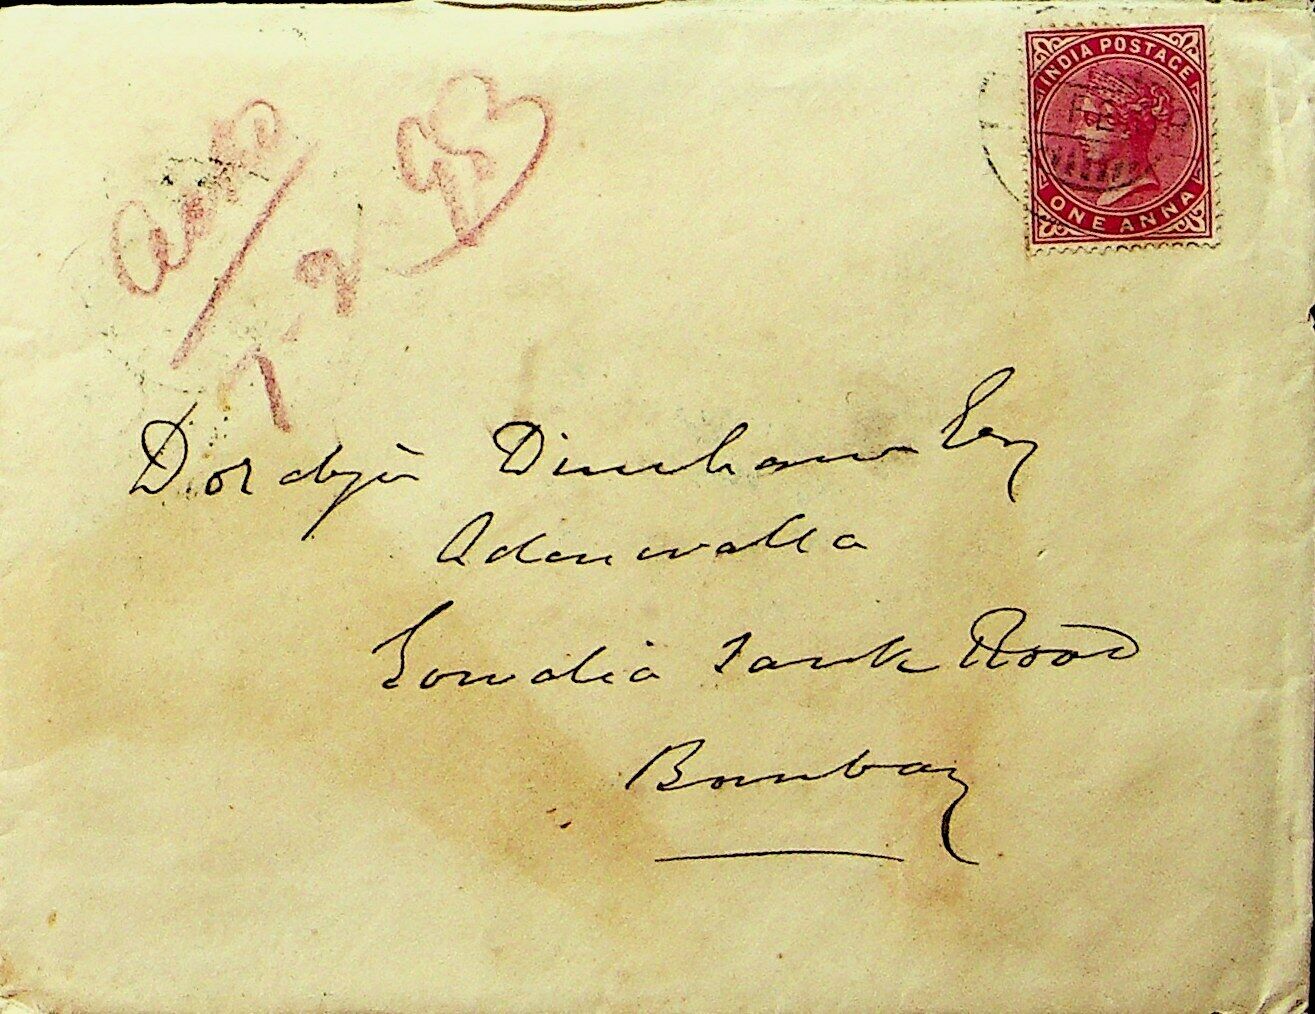 INDIA POSTAGE
ONE ANNA
7-2-98
Dordyi Dinshaw Esq
Adenwalla
Gowalia Tank Road
Bombay